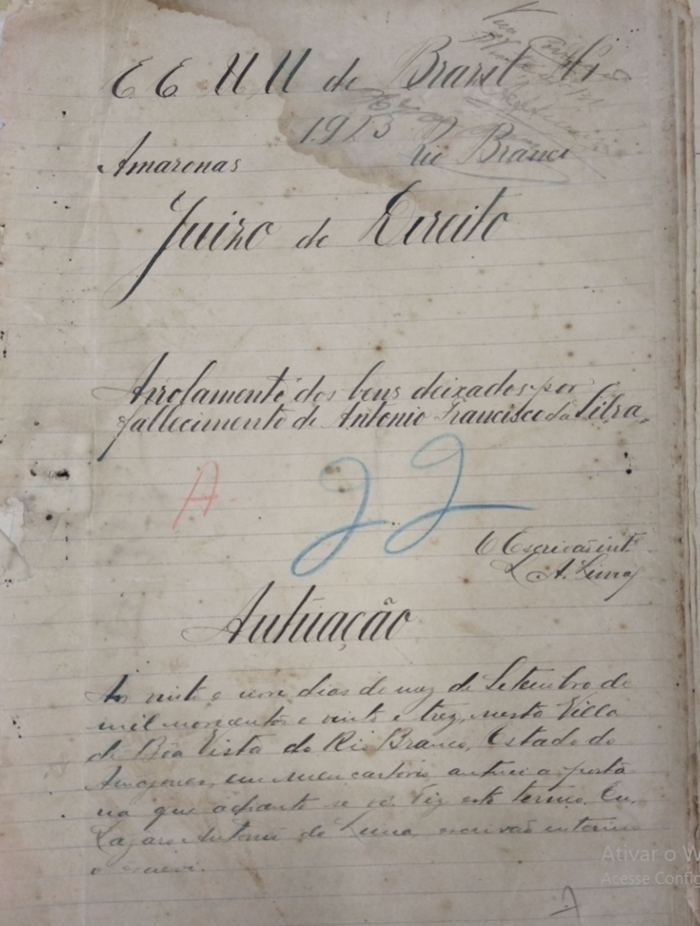 E E U U do Brazil
1923
Amazonas Rio Branco
Juizo de Direito
Arrolamento dos bens deixados por
fallecimento de Antonio Francisco da Silva,
A
22
O Escrivão intº
A. Lima
Autuação
Ao vinte e nove dias do mez de Setembro de
mil novecentos e vinte e trez, nesta Villa
de Bôa Vista do Rio Branco, Estado do
Amazonas, em meu cartorio autuei a porta
ria que adiante se vê. Fiz este termo. Eu,
Lazaro Antonio de Lima, escrivão interino
o escrevi.
Ativar o W
Acesse Config